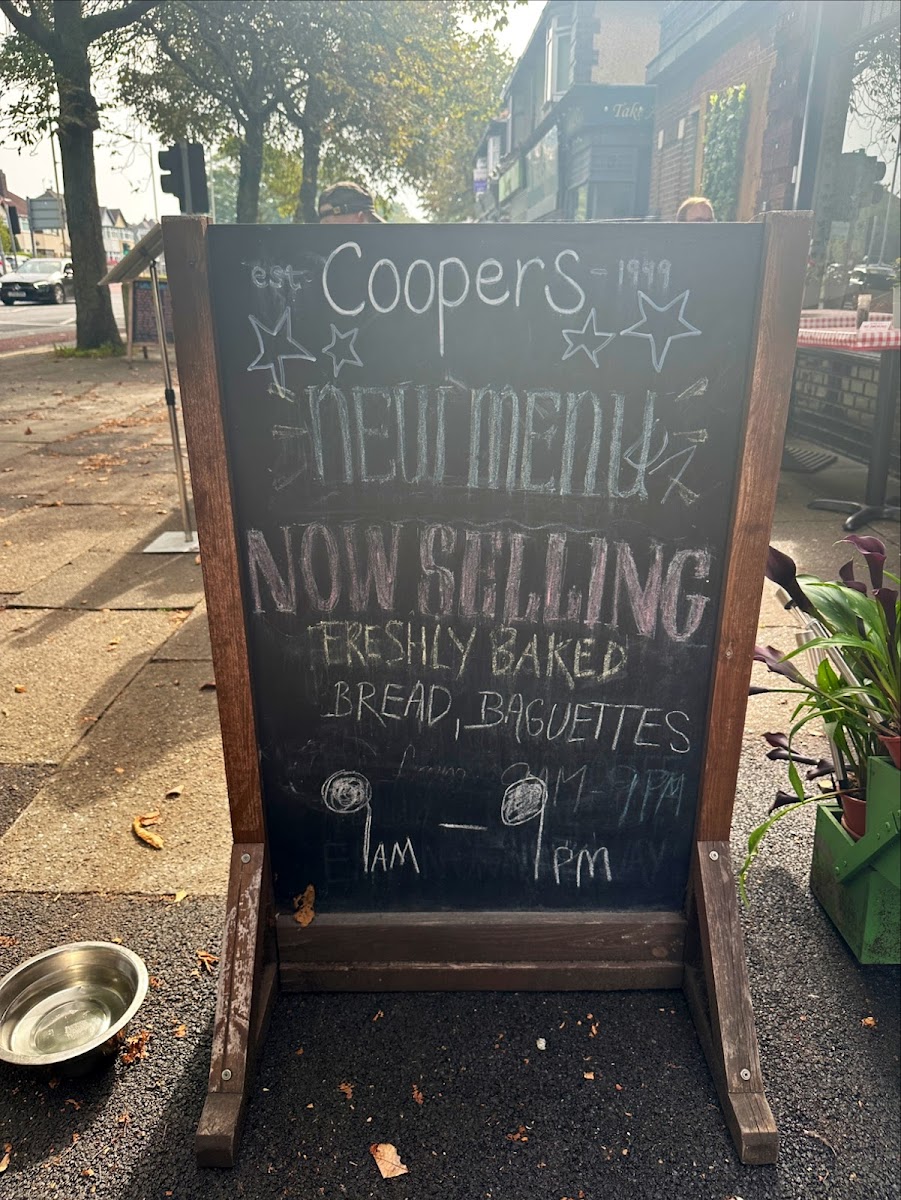 est- Coopers - 1949
NEW MENU
NOW SELLING
FRESHLY BAKED
BREAD, BAGUETTES
from 9AM - 9PM
9AM - 9PM
Take